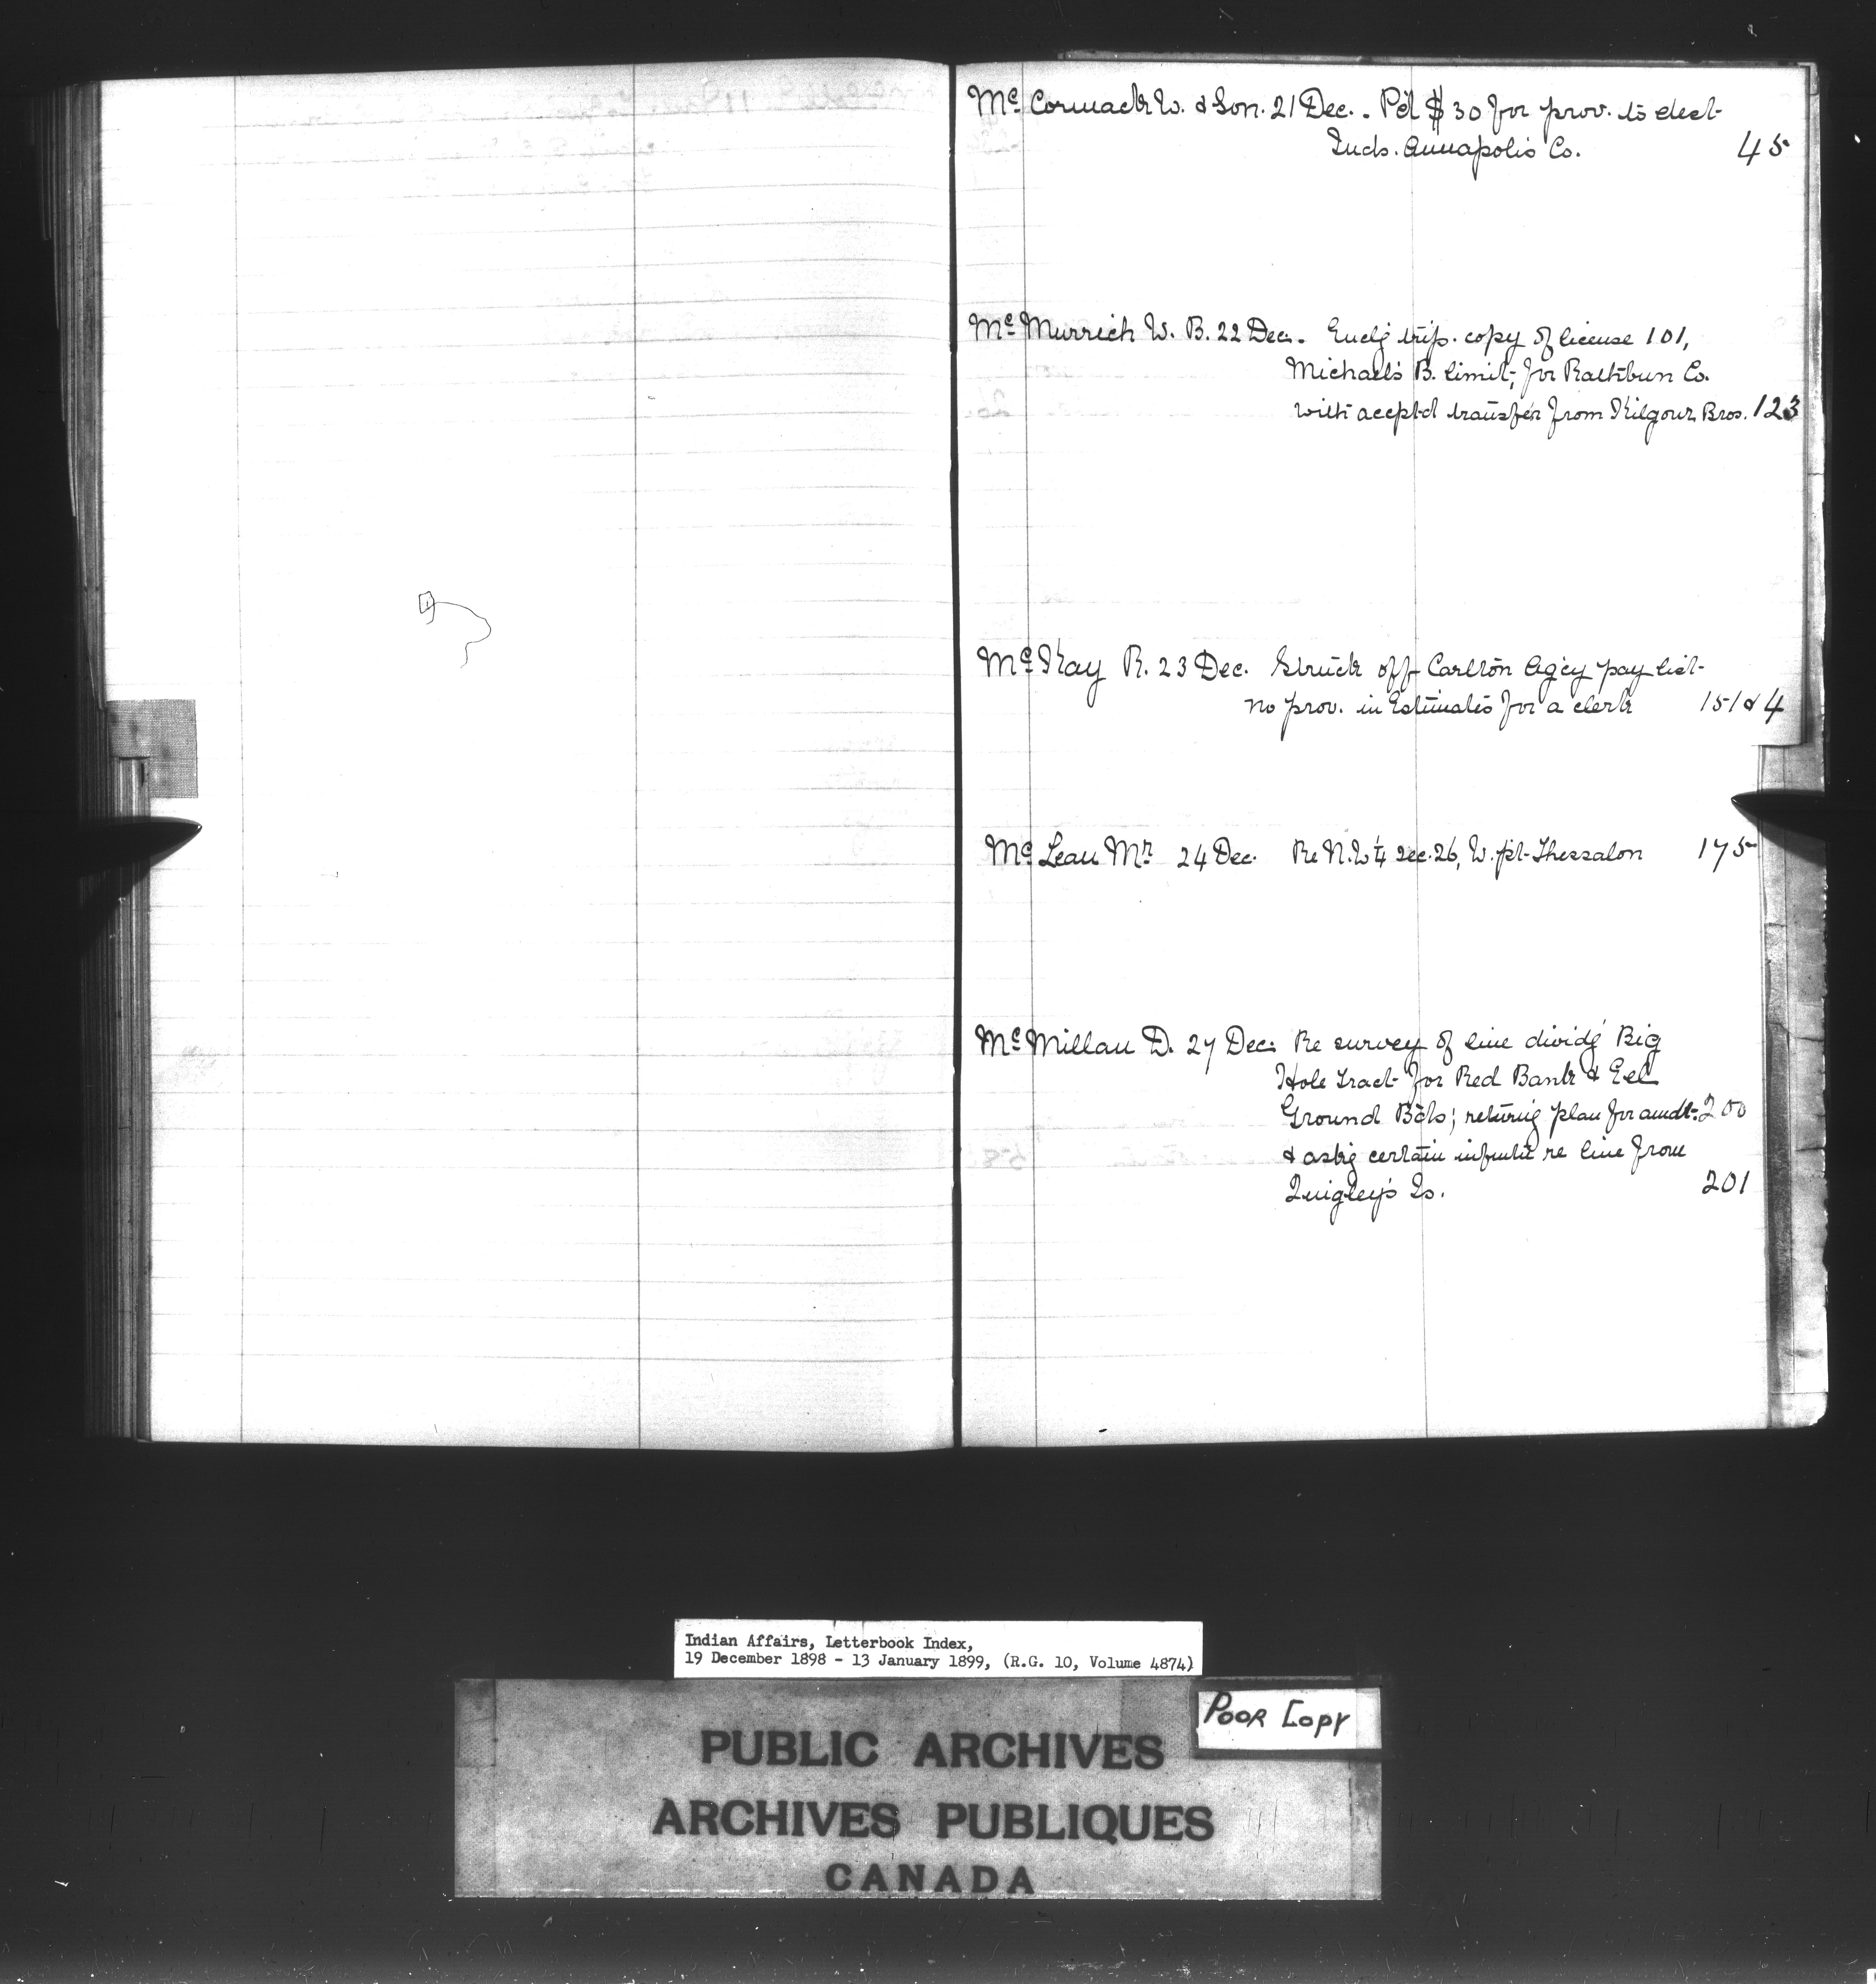 Mc Cormack W. & Son. 21 Dec. . Pd $30 for prov. to dest
Inds. Annapolis Co. 45
Mc Murrich W. B. 22 Dec. Enclg trip. copy of license 101,
Michael's B. limit, for Rathbun Co.
with accptd transfer from Kilgour Bros. 123
Mc Kay R. 23 Dec. Struck off Carlton Agcy pay list
no prov. in Estimates for a clerk 151 & 4
Mc Lean Mr 24 Dec. Re N.W ¼ sec. 26, W. pt Thessalon 175
Mc Millan D. 27 Dec. Re survey of line dividg Big
Hole Tract for Red Bank & Eel
Ground Bds; returng plan for amdt. 200
& askg certain infmtn re line from
Quigley's Is. 201
Indian Affairs, Letterbook Index,
19 December 1898 - 13 January 1899, (R.G. 10, Volume 4874)
Poor Copy
PUBLIC ARCHIVES
ARCHIVES PUBLIQUES
CANADA